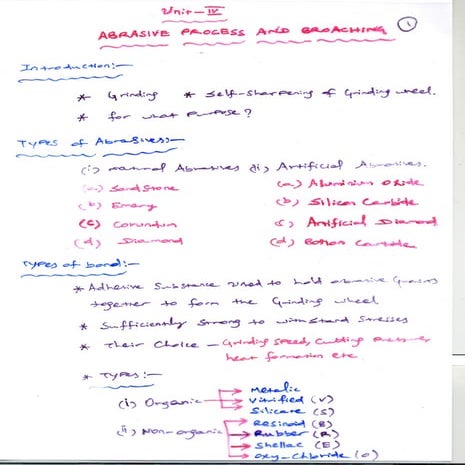 Unit - IV
ABRASIVE PROCESS AND BROACHING ①
Introduction:-
* Grinding * Self-Sharpening of Grinding wheel.
* for what purpose?
Types of Abrasives:-
(i) natural Abrasives (ii) Artificial Abrasives.
(a) Sand Stone (a) Aluminium Oxide
(b) Emery (b) Silicon Carbide
(c) Corundum (c) Artificial Diamond
(d) Diamond (d) Boron Carbide
Types of bond:-
* Adhesive Substance used to hold abrasive Grains
together to form the Grinding wheel
* Sufficiently Strong to withstand Stresses
* Their Choice - Grinding Speed, Cutting pressure,
heat formation etc.
* Types:-
(i) Organic Metalic
Vitrified (V)
Silicate (S)
(ii) Non-organic Resinoid (B)
Rubber (R)
Shellac (E)
Oxy-Chloride (O)